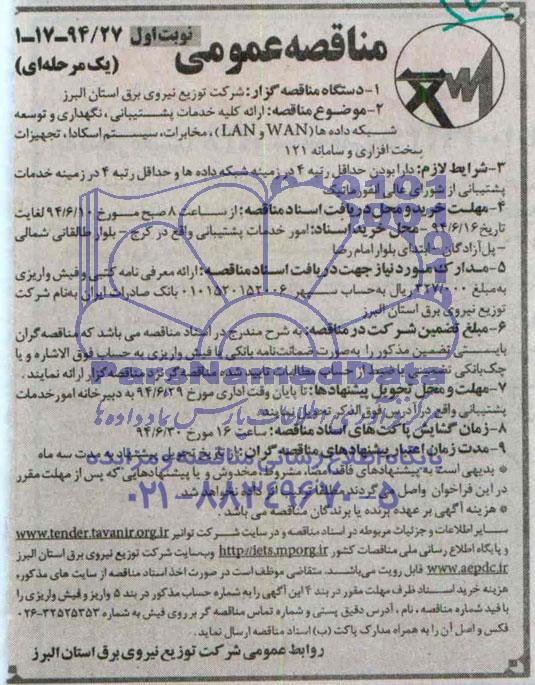 مناقصه عمومی
نوبت اول ۹۴/۲۷-۱۷-۱
(یک مرحله‌ای)
۱-دستگاه مناقصه گزار: شرکت توزیع نیروی برق استان البرز
۲-موضوع مناقصه: ارائه کلیه خدمات پشتیبانی، نگهداری و توسعه
شبکه داده ها (WAN و LAN)، مخابرات، سیستم اسکادا، تجهیزات
سخت افزاری و سامانه ۱۲۱
۳-شرایط لازم: دارا بودن حداقل رتبه ۴ در زمینه شبکه داده ها و حداقل رتبه ۴ در زمینه خدمات
پشتیبانی از شورای عالی انفورماتیک
۴-مهلت خرید و محل دریافت اسناد مناقصه: از ساعت ۸ صبح مورخ ۹۴/۶/۱۰ لغایت
تاریخ ۹۴/۶/۱۶ -محل خرید اسناد: امور خدمات پشتیبانی واقع در کرج - بلوار طالقانی شمالی
- پل آزادگان - ابتدای بلوار امام رضا
۵-مدارک مورد نیاز جهت دریافت اسناد مناقصه: ارائه معرفی نامه کتبی و فیش واریزی
به مبلغ ۳۲۷/۰۰۰ ریال به حساب سپهر ۰۱۰۱۵۲۰۱۵۲۰۰۶ بانک صادرات ایران به نام شرکت
توزیع نیروی برق استان البرز
۶-مبلغ تضمین شرکت در مناقصه: به شرح مندرج در اسناد مناقصه می باشد که مناقصه گران
بایستی تضمین مذکور را به صورت ضمانت‌نامه بانکی یا فیش واریزی به حساب فوق الاشاره و یا
چک بانکی تضمینی یا ضبط از حساب مطالبات تایید شده مناقصه گر نزد مناقصه گزار ارائه نمایند.
۷-مهلت و محل تحویل پیشنهادها: تا پایان وقت اداری مورخ ۹۴/۶/۲۹ به دبیرخانه امور خدمات
پشتیبانی واقع در آدرس فوق الذکر تحویل نمایند.
۸-زمان گشایش پاکت های اسناد مناقصه: ساعت ۱۶ مورخ ۹۴/۶/۳۰
۹-مدت زمان اعتبار پیشنهادهای مناقصه گران: از تاریخ تحویل پیشنهاد به مدت سه ماه
* بدیهی است به پیشنهادهای فاقد امضا، مشروط، مخدوش و یا پیشنهادهایی که پس از مهلت مقرر
در این فراخوان واصل می گردند، مطلقا ترتیب اثر داده نخواهد شد.
* هزینه آگهی بر عهده برنده یا برندگان مناقصه می باشد.
سایر اطلاعات و جزئیات مربوطه در اسناد مناقصه و در سایت شرکت توانیر www.tender.tavanir.org.ir
و پایگاه اطلاع رسانی ملی مناقصات کشور http//iets.mporg.ir وب‌سایت شرکت توزیع نیروی برق استان البرز
www.aepdc.ir قابل رویت می‌باشند. متقاضی موظف است در صورت اخذ اسناد مناقصه از سایت های مذکور،
هزینه خرید اسناد ظرف مهلت مقرر در بند ۴ این آگهی را به شماره حساب مذکور در بند ۵ واریز و فیش واریزی را
با قید شماره مناقصه، نام، آدرس دقیق پستی و شماره تماس مناقصه گر بر روی فیش به شماره ۳۲۵۲۵۳۵۳-۰۲۶
فکس و اصل آن را به همراه مدارک پاکت (ب) اسناد مناقصه ارسال نماید.
روابط عمومی شرکت توزیع نیروی برق استان البرز
ParsNamadData
۰۲۱-۸۸۳۴۹۶۷۰-۵